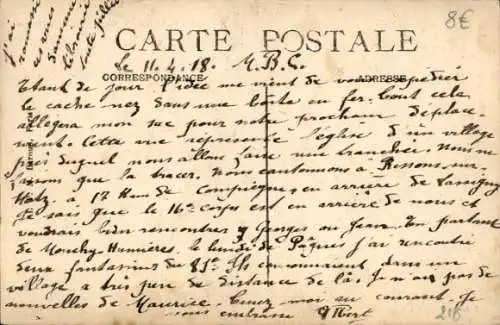 J'ai
8€
CARTE POSTALE
Le 11.4.18. M.B.C.
CORRESPONDANCE ADRESSE
Étant de jour l'idée me vient de vous expédier
le cache nez dans une boîte en fer. Tout cela
allegera mon sac pour notre prochain déplace
ment. Cette vue représente l'église d'un village
près duquel nous allons faire une tranchée. Nous ne
faisons que la tracer. Nous cantonnons à Ressons sur
Matz à 17 Kms de Compiègne, en arrière de Lassigny
Je sais que le 16e corps est en arrière de nous et
voudrais bien rencontrer Georges ou Jean. En partant
de Monchy Humières, le lundi de Pâques j'ai rencontré
deux fantassins du 81e. Ils cantonnaient dans un
village à très peu de distance de là. Je n'ai pas de
nouvelles de Maurice. Tenez moi au courant. Je
vous embrasse